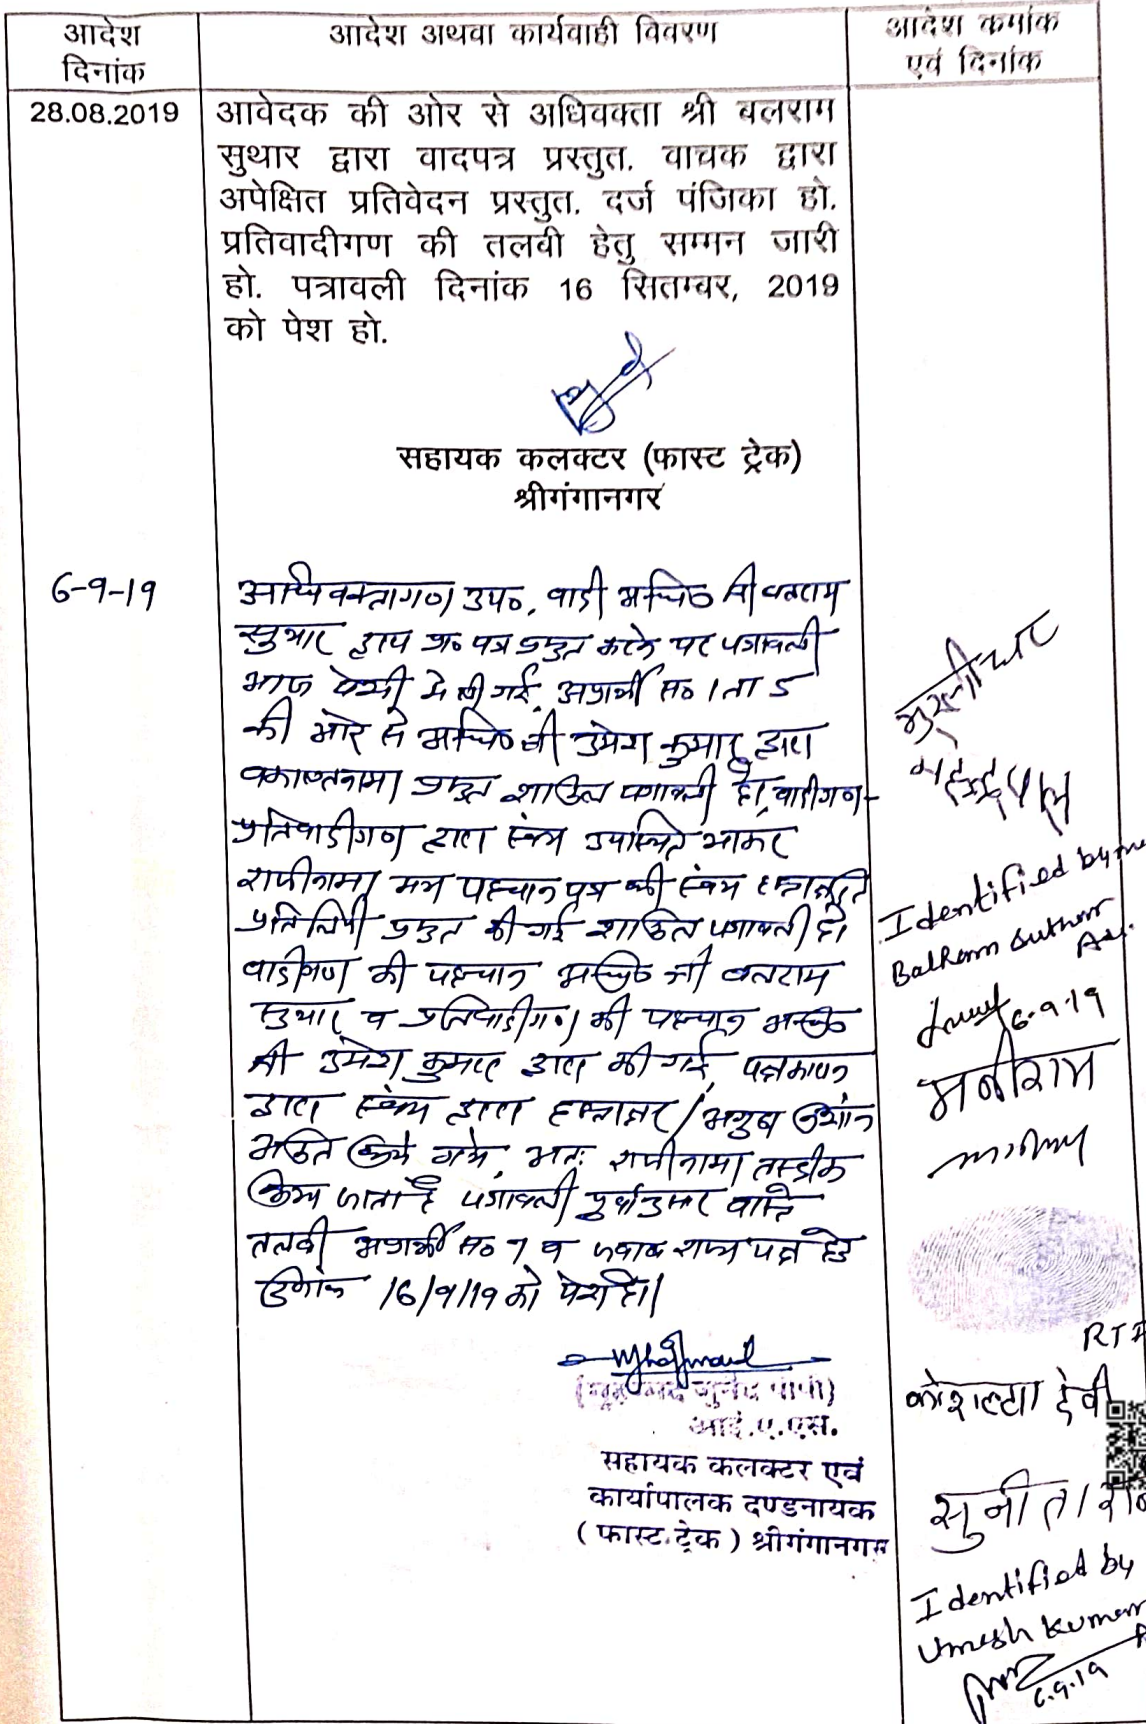 आदेश
दिनांक
आदेश अथवा कार्यवाही विवरण
आदेश कमांक
एवं दिनांक
28.08.2019
आवेदक की ओर से अधिवक्ता श्री बलराम
सुथार द्वारा वादपत्र प्रस्तुत. वाचक द्वारा
अपेक्षित प्रतिवेदन प्रस्तुत. दर्ज पंजिका हो.
प्रतिवादीगण की तलवी हेतु सम्मन जारी
हो. पत्रावली दिनांक 16 सितम्बर, 2019
को पेश हो.
सहायक कलक्टर (फास्ट ट्रेक)
श्रीगंगानगर
6-9-19
अधिवक्तागण उप०, वादी अधि० श्री बलराम
सुथार द्वारा प्रा० पत्र प्रस्तुत करने पर पत्रावली
आज पेशी में ली गई. अप्रार्थी स० 1 ता 5
की ओर से अधि० श्री उमेश कुमार द्वारा
वकालतनामा प्रस्तुत शामिल पत्रावली हो, वादीगण-
प्रतिवादीगण द्वारा स्वंय उपस्थित आकर
राजीनामा मय पहचान पत्र की स्वंय हस्ताक्षरित
प्रतिलिपी प्रस्तुत की गई शामिल पत्रावली हो।
वादीगण की पहचान अधि० श्री बलराम
सुथार व प्रतिवादीगण की पहचान अधि०
श्री उमेश कुमार द्वारा की गई, पक्षकारान
द्वारा स्वंय द्वारा हस्ताक्षर / अगुष्ठ निशान
अंकित किये गये, अतः राजीनामा तस्दीक
किया जाता है पत्रावली पूर्वानुसार वास्ते
तलवी अप्रार्थी स० 7 व जवाब राज्य पक्ष हेतु
दिनांक 16/9/19 को पेश हो।
आई.ए.एस.
सहायक कलक्टर एवं
कार्यापालक दण्डनायक
( फास्ट ट्रेक ) श्रीगंगानगर
मुरलीधर
महेन्द्रपाल
Identified by me
Balkram Suthar
Adv.
6-9-19
मनीराम
RTI
कोशल्या देवी
सुनीता
Identified by
Umesh Kumar
6.9.19